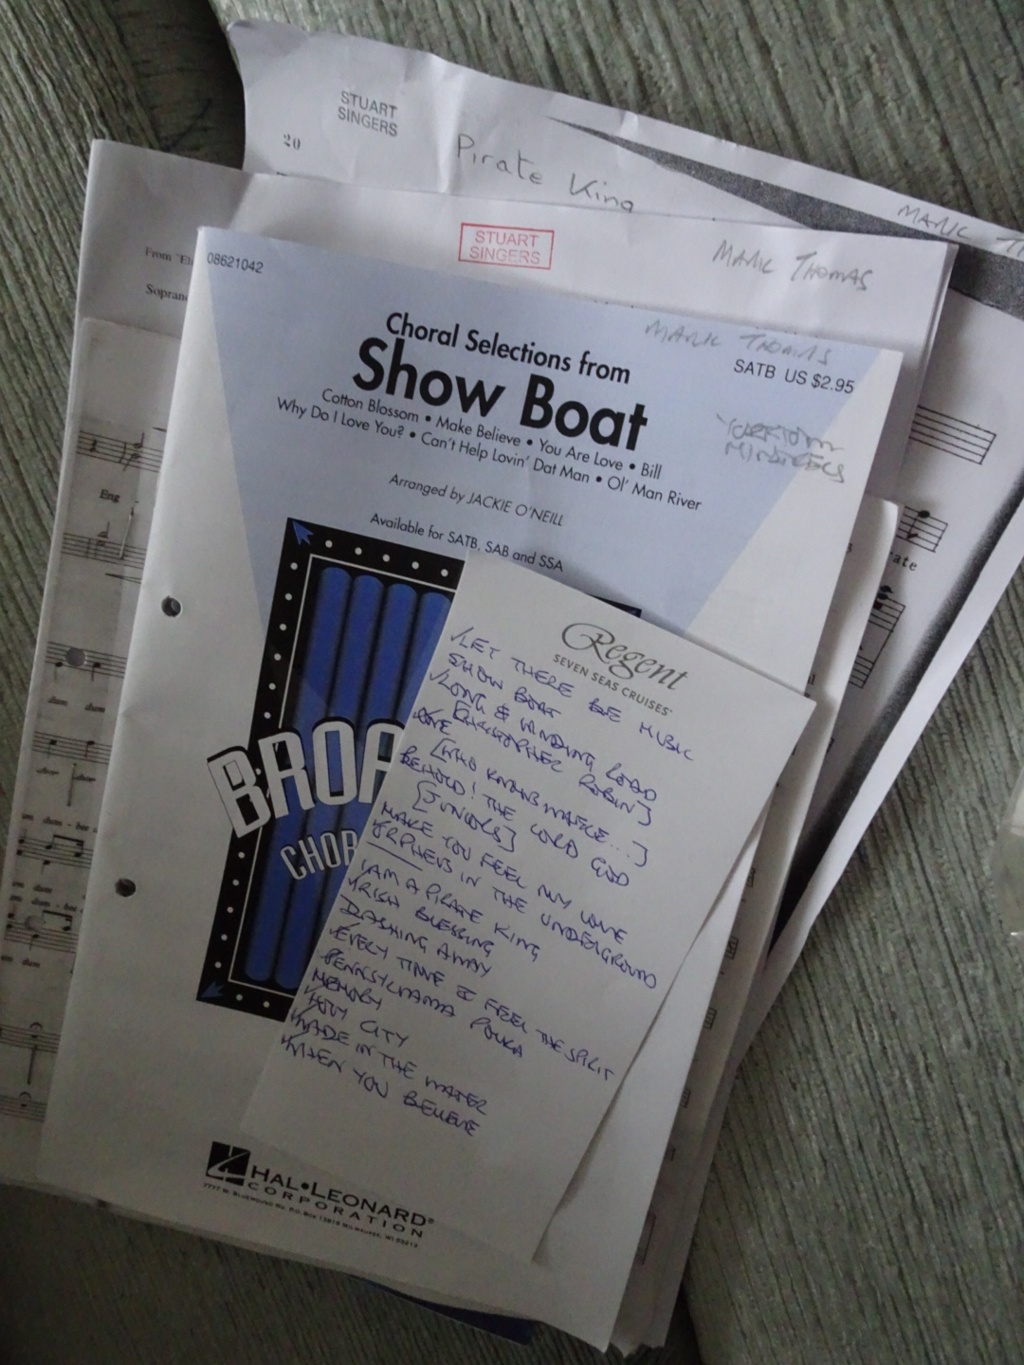 STUART
SINGERS
20
Pirate King
MARK T
STUART
SINGERS
MARK THOMAS
From "El
Soprano
08621042
MARK THOMAS
Choral Selections from
Show Boat
SATB US $2.95
Cotton Blossom • Make Believe • You Are Love • Bill
Why Do I Love You? • Can't Help Lovin' Dat Man • Ol' Man River
Arranged by JACKIE O'NEILL
Available for SATB, SAB and SSA
Eng
ate
BROA
CHOR
Regent
SEVEN SEAS CRUISES
✓LET THERE BE MUSIC
SHOW BOAT
✓LONG & WINDING ROAD
[CHRISTOPHER ROBIN]
[WHO KNOWS MAYBE...]
BEHOLD! THE LORD GOD
[JUNIORS]
MAKE YOU FEEL MY LOVE
ORPHEUS IN THE UNDERGROUND
I AM A PIRATE KING
IRISH BLESSING
DASHING AWAY
EVERY TIME I FEEL THE SPIRIT
PENNSYLVANIA POLKA
MEMORY
HOLY CITY
WADE IN THE WATER
WHEN YOU BELIEVE
dum
dum
dum
HAL•LEONARD®
CORPORATION